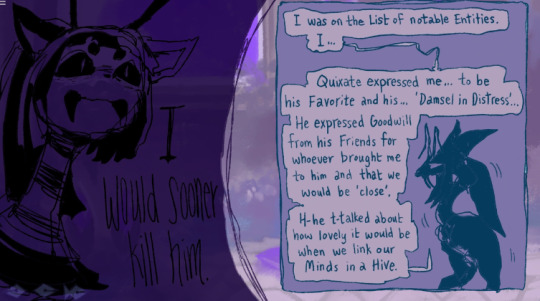 I
would sooner
kill him.
I was on the List of notable Entities.
I...
Quixate expressed me... to be
his Favorite and his... 'Damsel in Distress'...
He expressed Goodwill
from his Friends for
whoever brought me
to him and that we
would be 'close'.
H-he t-talked about
how lovely it would be
when we link our
Minds in a Hive.